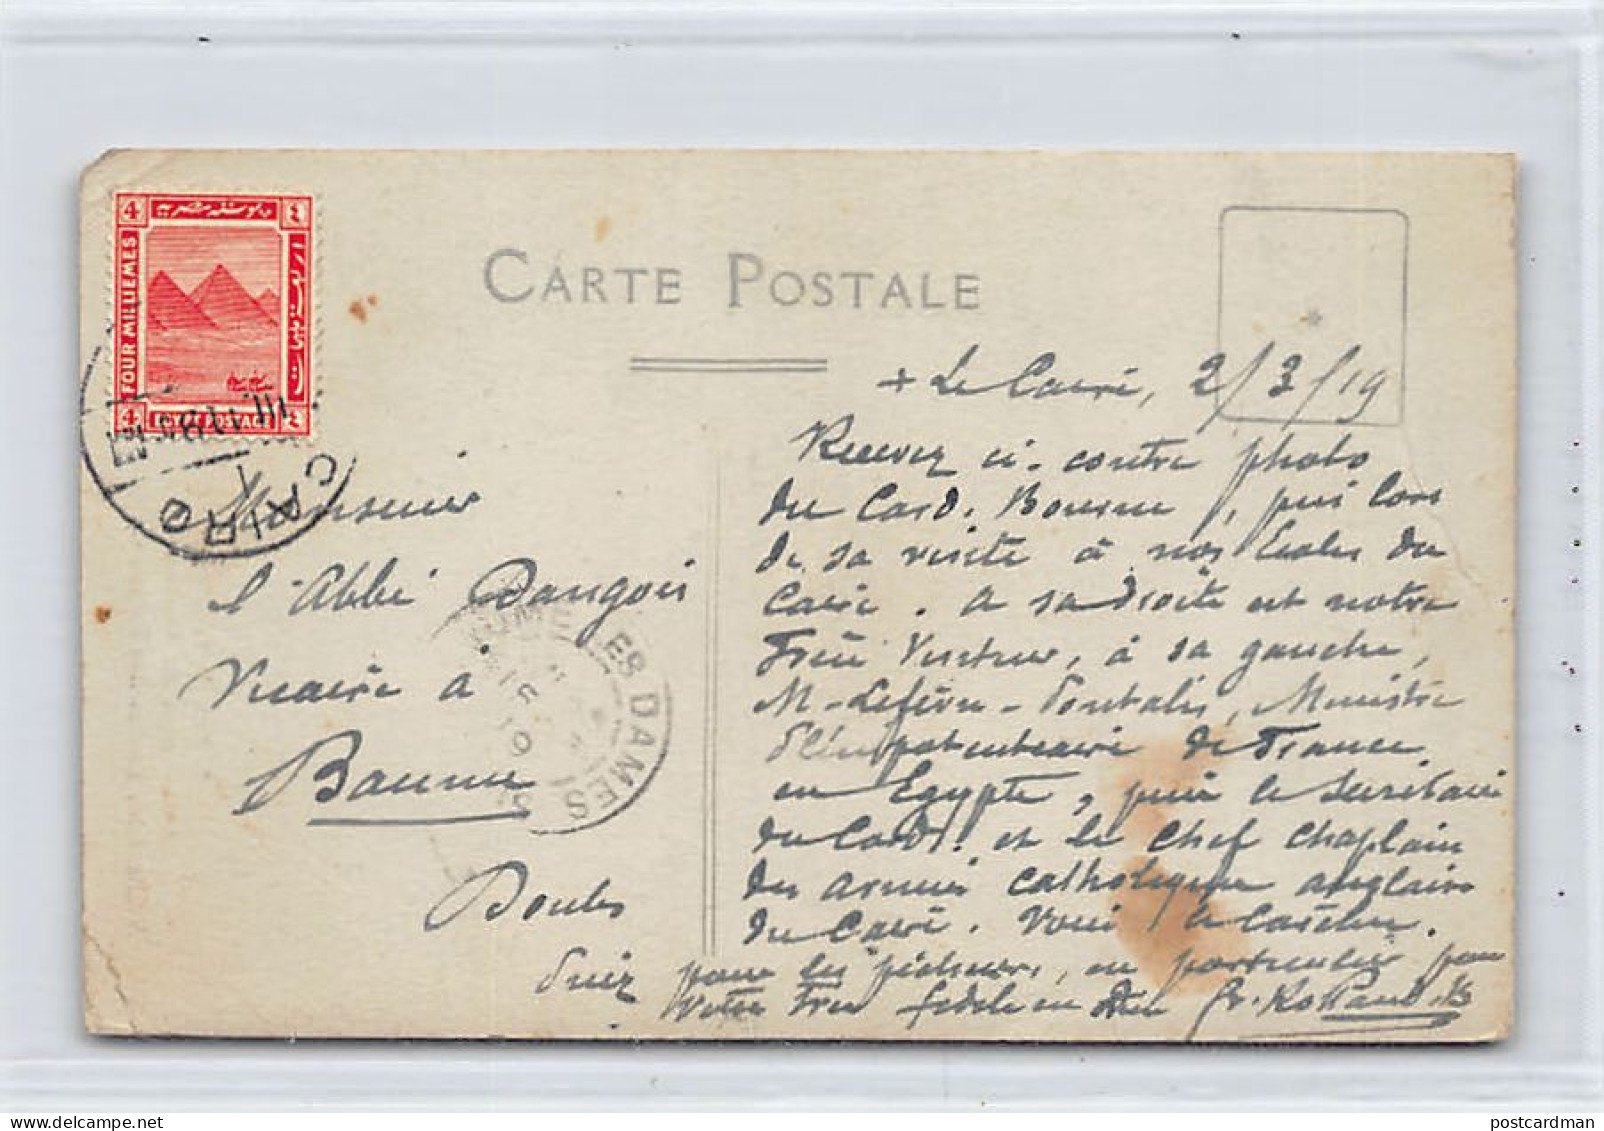 CARTE POSTALE
4 بوستة مصرية ٤
FOUR MILLIEMES
4 EGYPT POSTAGE ٤
CAIRO
+ Le Caire, 2/3/19
Recevez ci-contre photo
du Card. Bourne, pris lors
de sa visite à nos Ecoles du
Caire. A sa droite est notre
Frère Visiteur, à sa gauche,
M. Lefèvre-Pontalis, Ministre
Plénipotentiaire de France
en Egypte, puis le Secrétaire
du Card. et le Chef Chaplain
des armées catholique anglaise
du Caire. Voici le
Priez pour les pécheurs, en particulier pour
Votre Frère fidèle en Dieu Fr.
Monsieur
l'Abbé Dangois
Vicaire à
Baume
Doubs
BAUME LES DAMES
postcardman